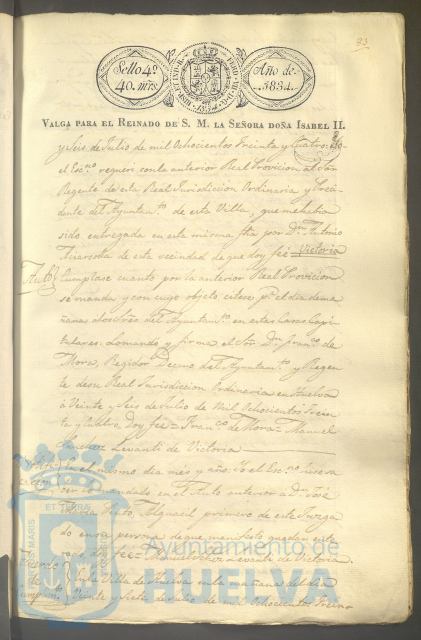 93
Sello 4º
40. mrs.
HISP. ET IND. R.
FERD. VII. D. G.
1834
Año de
1834.
VALGA PARA EL REINADO DE S. M. LA SEÑORA DOÑA ISABEL II.
y seis de Julio de mil ochocientos treinta y cuatro: Yo
el Escno requeri con la anterior Real Provicion al Sor
Regente de esta Real Jurisdiccion Ordinaria y Presi-
dente del Ayuntamto de esta Villa, que me habia
sido entregada en esta misma fha por Dn Antonio
de esta vecindad de que doy feé = Victoria
Auto
Cumplase cuanto por la anterior Real Provicion
se manda y con cuyo objeto citese pa el dia de ma-
ñana a los Sres del Ayuntamto en estas Casas Capi-
tulares. Lo mando y firma el Sor Dn Franco de
Mora, Regidor Decano del Ayuntamto y Regen-
te de su Real Jurisdiccion Ordinaria en Huelva
à Veinte y seis de Julio de mil ochocientos trein-
ta y cuatro, doy feé = Franco de Mora = Manuel
Sanchez Levanti de Victoria
En el mismo dia mes y año: Yo el Escno hice sa-
ver lo mandado en el Auto anterior a Dn José
Maria Alguacil primero de este Juzga-
do en su persona de que manifestó quedar ente-
rado doy feé = Manuel Sanchez Levanti de Victoria.
Acuerdo
de
Cumplimto
En la Villa de Huelva en la mañana del dia
Veinte y siete de Julio de mil ochocientos trein-
ET TERRAE
MARIS
Ayuntamiento de
HUELVA